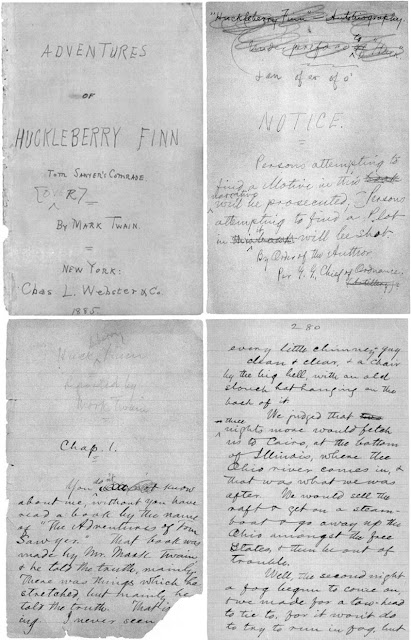 ADVENTURES
OF
HUCKLEBERRY FINN
TOM SAWYER'S COMRADE.
BY MARK TWAIN.
NEW YORK:
Chas L. Webster & Co.
1885.
"Huckleberry Finn" Autobiography
NOTICE.
Persons attempting to
find a Motive in this book
narrative
will be prosecuted; Persons
attempting to find a Plot
in this book will be shot.
By Order of the Author
Per G. G., Chief of Ordnance.
Huck Finn
Reported by
Mark Twain
Chap. 1.
You do not know
about me, without you have
read a book by the name
of "The Adventures of Tom
Sawyer." That book was
made by Mr. Mark Twain,
& he told the truth, mainly.
There was things which he
stretched, but mainly he
told the truth. That's
I never seen
280
every little chimney-guy
clean & clear, & a chair
by the big bell, with an old
slouch hat hanging on the
back of it.
We judged that
three
nights more would fetch
us to Cairo, at the bottom
of Illinois, where the
Ohio river comes in, &
that was what we was
after. We would sell the
raft & get on a steam-
boat & go away up the
Ohio amongst the free
States, & then be out of
trouble.
Well, the second night
a fog begun to come on,
& we made for a tow-head
to tie to, for it won't do
to try to run in fog, but